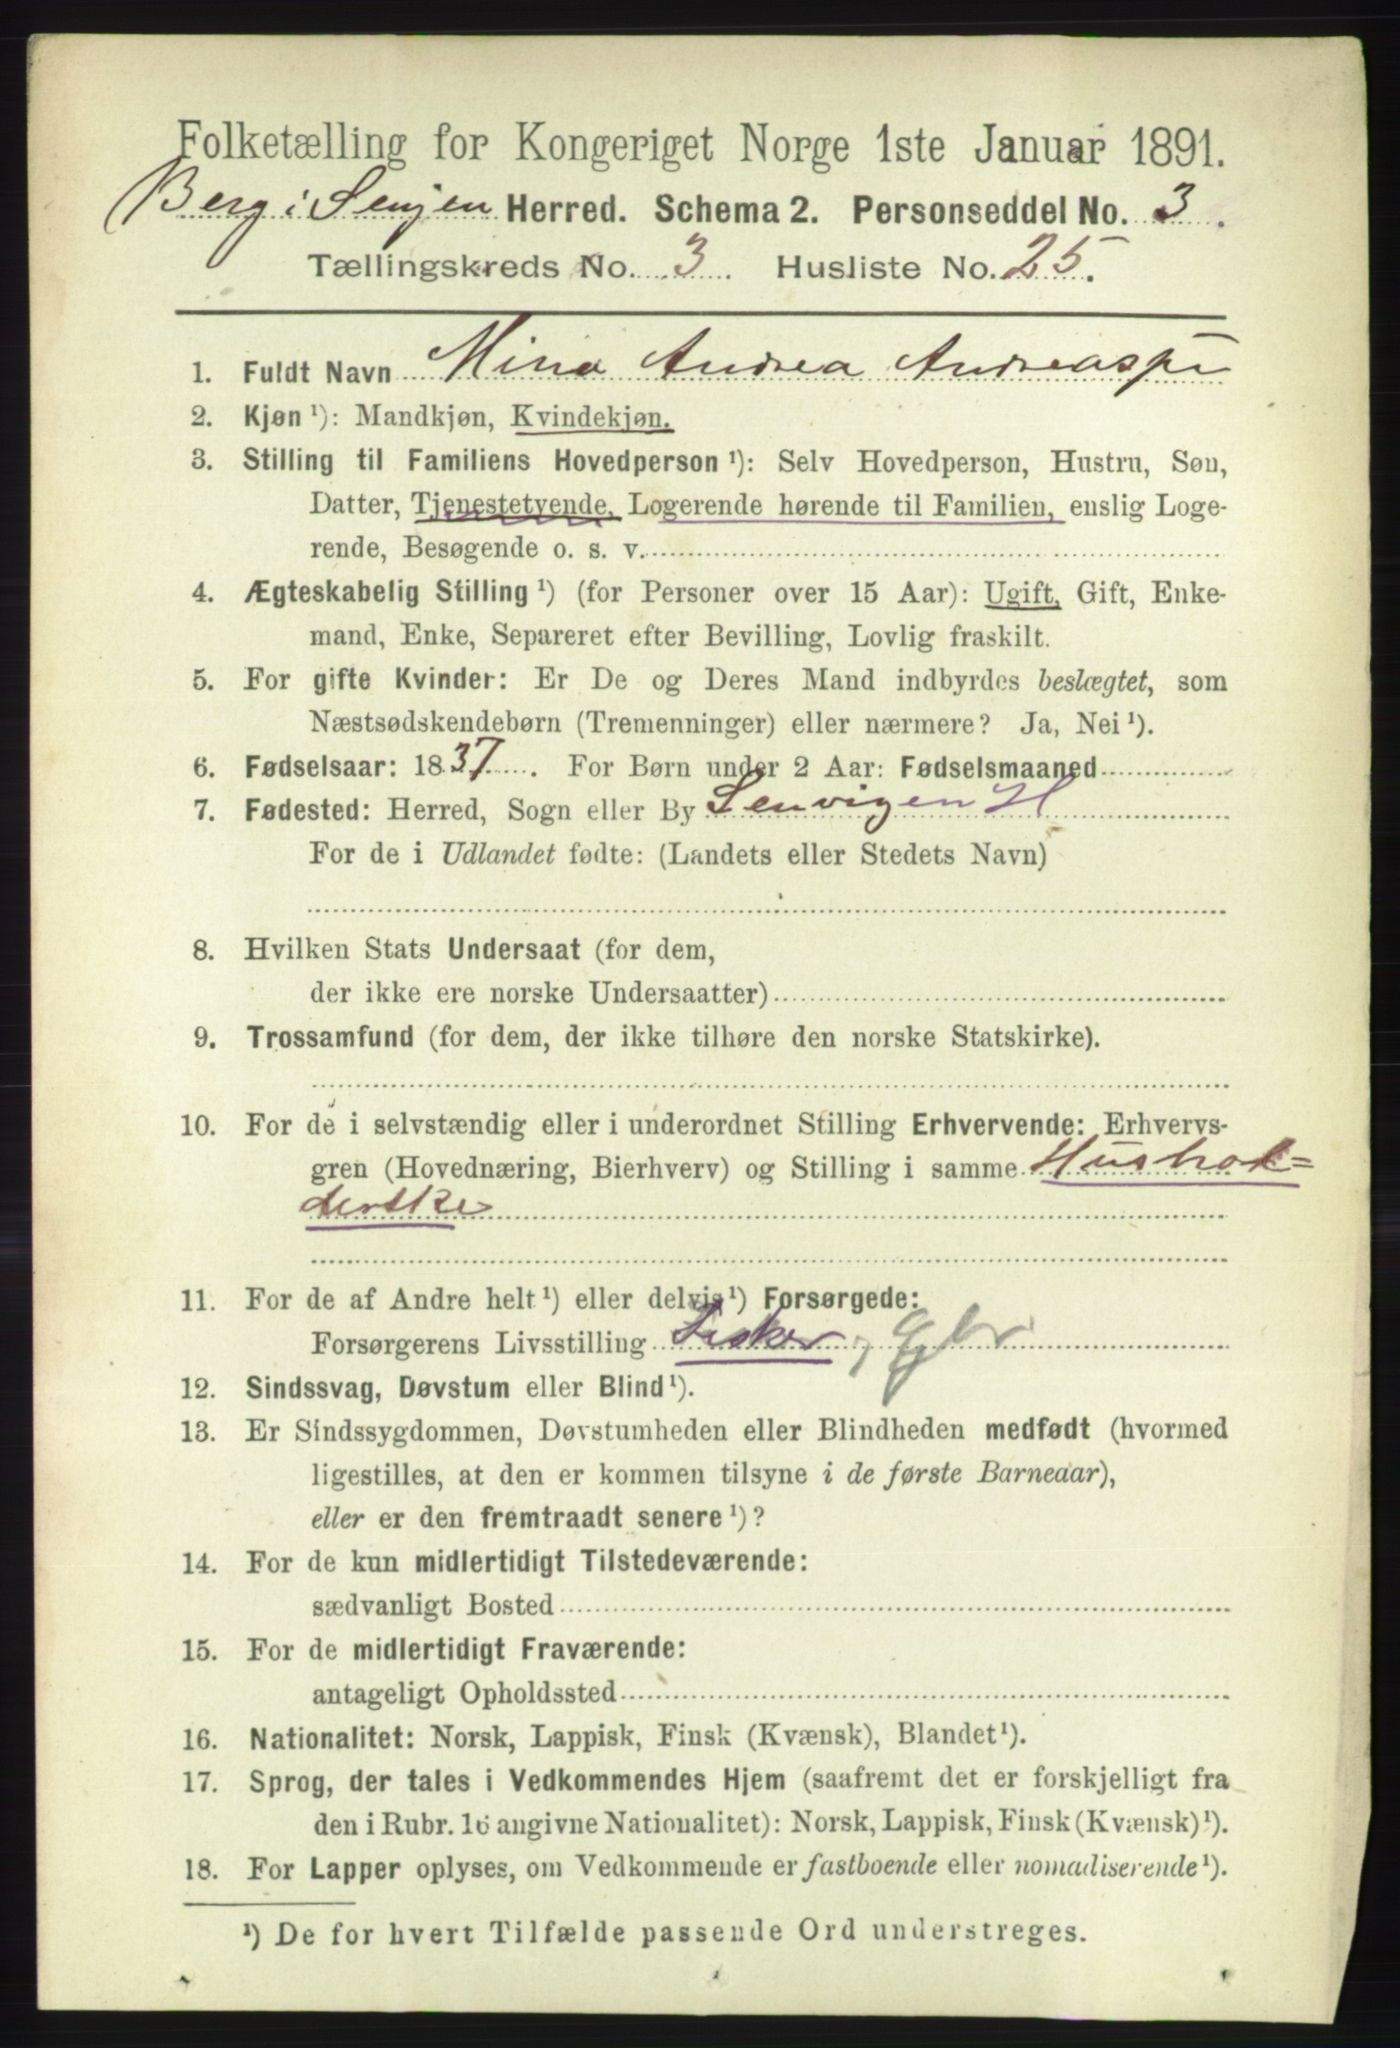 Folketælling for Kongeriget Norge 1ste Januar 1891.
Berg i Senjen Herred. Schema 2. Personseddel No. 3.
Tællingskreds No. 3. Husliste No. 25.
1. Fuldt Navn Mina Andrea Andreasp
2. Kjøn ¹): Mandkjøn, Kvindekjøn.
3. Stilling til Familiens Hovedperson ¹): Selv Hovedperson, Hustru, Søn,
Datter, Tjenestetyende, Logerende hørende til Familien, enslig Loge-
rende, Besøgende o. s. v.
4. Ægteskabelig Stilling ¹) (for Personer over 15 Aar): Ugift, Gift, Enke-
mand, Enke, Separeret efter Bevilling, Lovlig fraskilt.
5. For gifte Kvinder: Er De og Deres Mand indbyrdes beslægtet, som
Næstsødskendebørn (Tremenninger) eller nærmere? Ja, Nei ¹).
6. Fødselsaar: 1837. For Børn under 2 Aar: Fødselsmaaned
7. Fødested: Herred, Sogn eller By Lenvigen H
For de i Udlandet fødte: (Landets eller Stedets Navn)
8. Hvilken Stats Undersaat (for dem,
der ikke ere norske Undersaatter)
9. Trossamfund (for dem, der ikke tilhøre den norske Statskirke).
10. For de i selvstændig eller i underordnet Stilling Erhvervende: Erhvervs-
gren (Hovednæring, Bierhverv) og Stilling i samme Henshol=
derske
11. For de af Andre helt ¹) eller delvis ¹) Forsørgede:
Forsørgerens Livsstilling Fisker, Gbr
12. Sindssvag, Døvstum eller Blind ¹).
13. Er Sindssygdommen, Døvstumheden eller Blindheden medfødt (hvormed
ligestilles, at den er kommen tilsyne i de første Barneaar),
eller er den fremtraadt senere ¹)?
14. For de kun midlertidigt Tilstedeværende:
sædvanligt Bosted
15. For de midlertidigt Fraværende:
antageligt Opholdssted
16. Nationalitet: Norsk, Lappisk, Finsk (Kvænsk), Blandet ¹).
17. Sprog, der tales i Vedkommendes Hjem (saafremt det er forskjelligt fra
den i Rubr. 16 angivne Nationalitet): Norsk, Lappisk, Finsk (Kvænsk) ¹).
18. For Lapper oplyses, om Vedkommende er fastboende eller nomadiserende ¹).
¹) De for hvert Tilfælde passende Ord understreges.